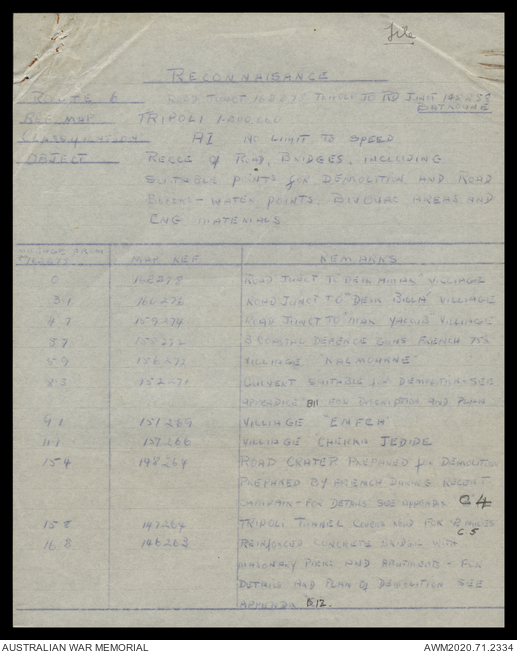 file
RECONNAISANCE
ROUTE 6 ROAD JUNCT 168279 TUNNEL TO RD JUNCT
BATROUNE
REF MAP TRIPOLI
CLASSIFICATION A1 NO LIMIT TO SPEED
OBJECT RECCE of ROAD, BRIDGES, INCLUDING
SUITABLE POINTS for DEMOLITION AND ROAD
BLOCKS - WATER POINTS, BIVOUAC AREAS AND
ENG MATERIALS
MILEAGE FROM MAP REF REMARKS
0 168279 ROAD JUNCT TO "DEIR" VILLIAGE
3.1 160276 ROAD JUNCT TO "DEIR BILLA" VILLIAGE
4.7 159274 ROAD JUNCT TO "YACUB" VILLIAGE
5.7 3 COASTAL DEFENCE GUNS FRENCH 75s
5.9 156272 VILLIAGE "KALMOUNE"
8.3 152271 CULVERT SUITABLE for DEMOLITION - SEE
APPENDIX B11 FOR DESCRIPTION AND PLAN
9.1 151269 VILLIAGE "ENFEH"
11.1 VILLIAGE CHEKKA JEDIDE
15.4 148264 ROAD CRATER PREPARED for DEMOLITION
PREPARED BY FRENCH DURING RECENT
CAMPAIGN - FOR DETAILS SEE APPENDIX C4
15.8 147264 TRIPOLI TUNNEL
C.5
16.8 146263 REINFORCED CONCRETE BRIDGE WITH
MASONRY PIERS AND ABUTMENTS - FOR
DETAILS AND PLAN of DEMOLITION SEE
APPENDIX B12.
AUSTRALIAN WAR MEMORIAL AWM2020.71.2334